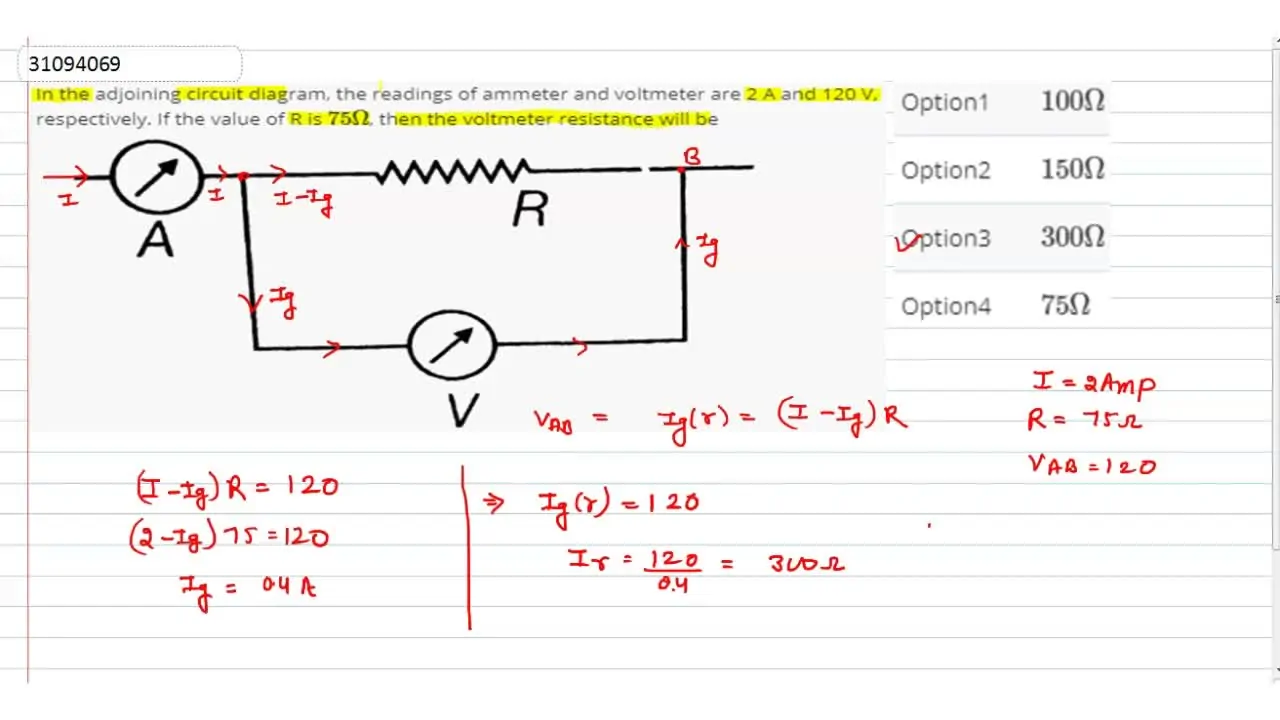 31094069
In the adjoining circuit diagram, the readings of ammeter and voltmeter are 2 A and 120 V,
respectively. If the value of R is 75Ω, then the voltmeter resistance will be
Option1 100Ω
Option2 150Ω
Option3 300Ω
Option4 75Ω
B
I
I
I-Ig
R
A
Ig
Ig
V
I = 2Amp
R = 75Ω
VAB = 120
VAB = Ig(r) = (I-Ig)R
(I-Ig)R = 120
(2-Ig)75=120
Ig = 0.4 A
⇒ Ig(r) = 120
Ir = 120/0.4 = 300Ω